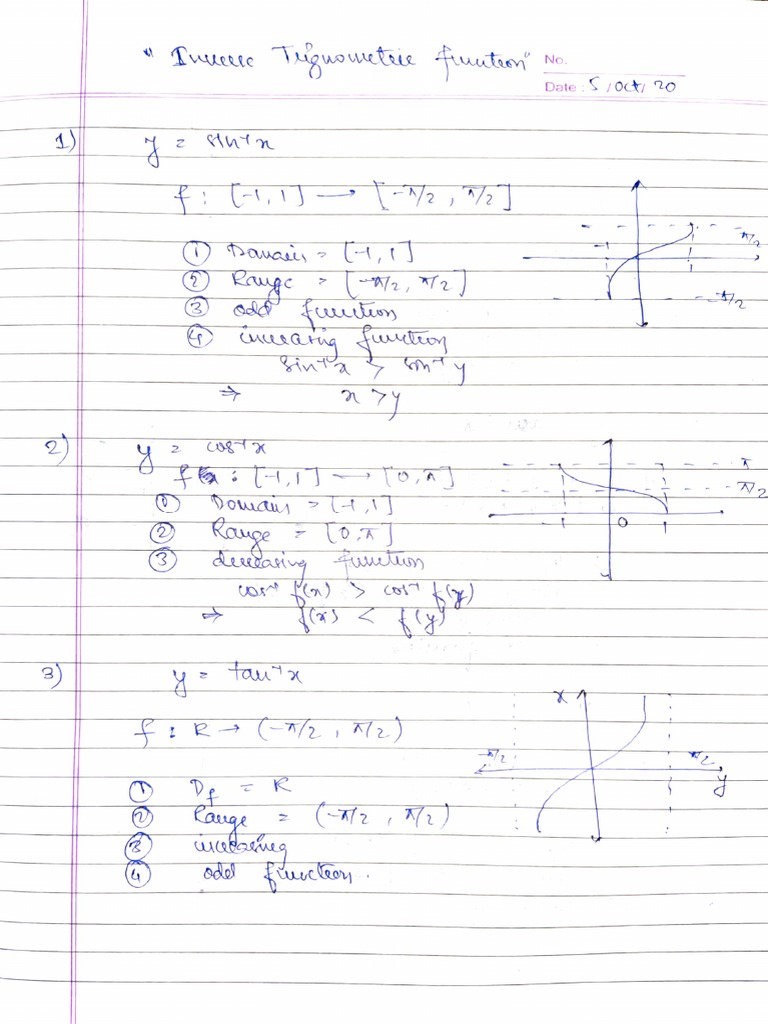 "Inverse Trignometric function" No.
Date: 5 / Oct / 20
1) y = sin⁻¹x
f : [-1, 1] → [-π/2, π/2]
① Domain = [-1, 1]
② Range = [-π/2, π/2]
③ odd function
④ increasing function
sin⁻¹x > sin⁻¹y
⇒ x > y
-1 1 π/2
-π/2
2) y = cos⁻¹x
f : [-1, 1] → [0, π]
① Domain = [-1, 1]
② Range = [0, π]
③ decreasing function
cos⁻¹ f(x) > cos⁻¹ f(y)
⇒ f(x) < f(y)
π
π/2
-1 0 1
3) y = tan⁻¹x
f : R → (-π/2, π/2)
① Df = R
② Range = (-π/2, π/2)
③ increasing
④ odd function.
x
-π/2 π/2
y